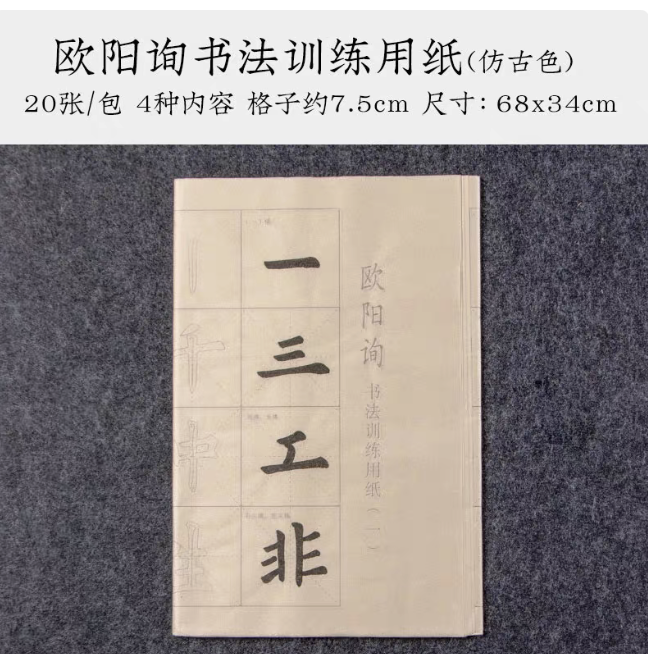 欧阳询书法训练用纸(仿古色)
20张/包 4种内容 格子约7.5cm 尺寸：68x34cm
欧阳询 书法训练用纸(一)
一
三
工
非
千
中